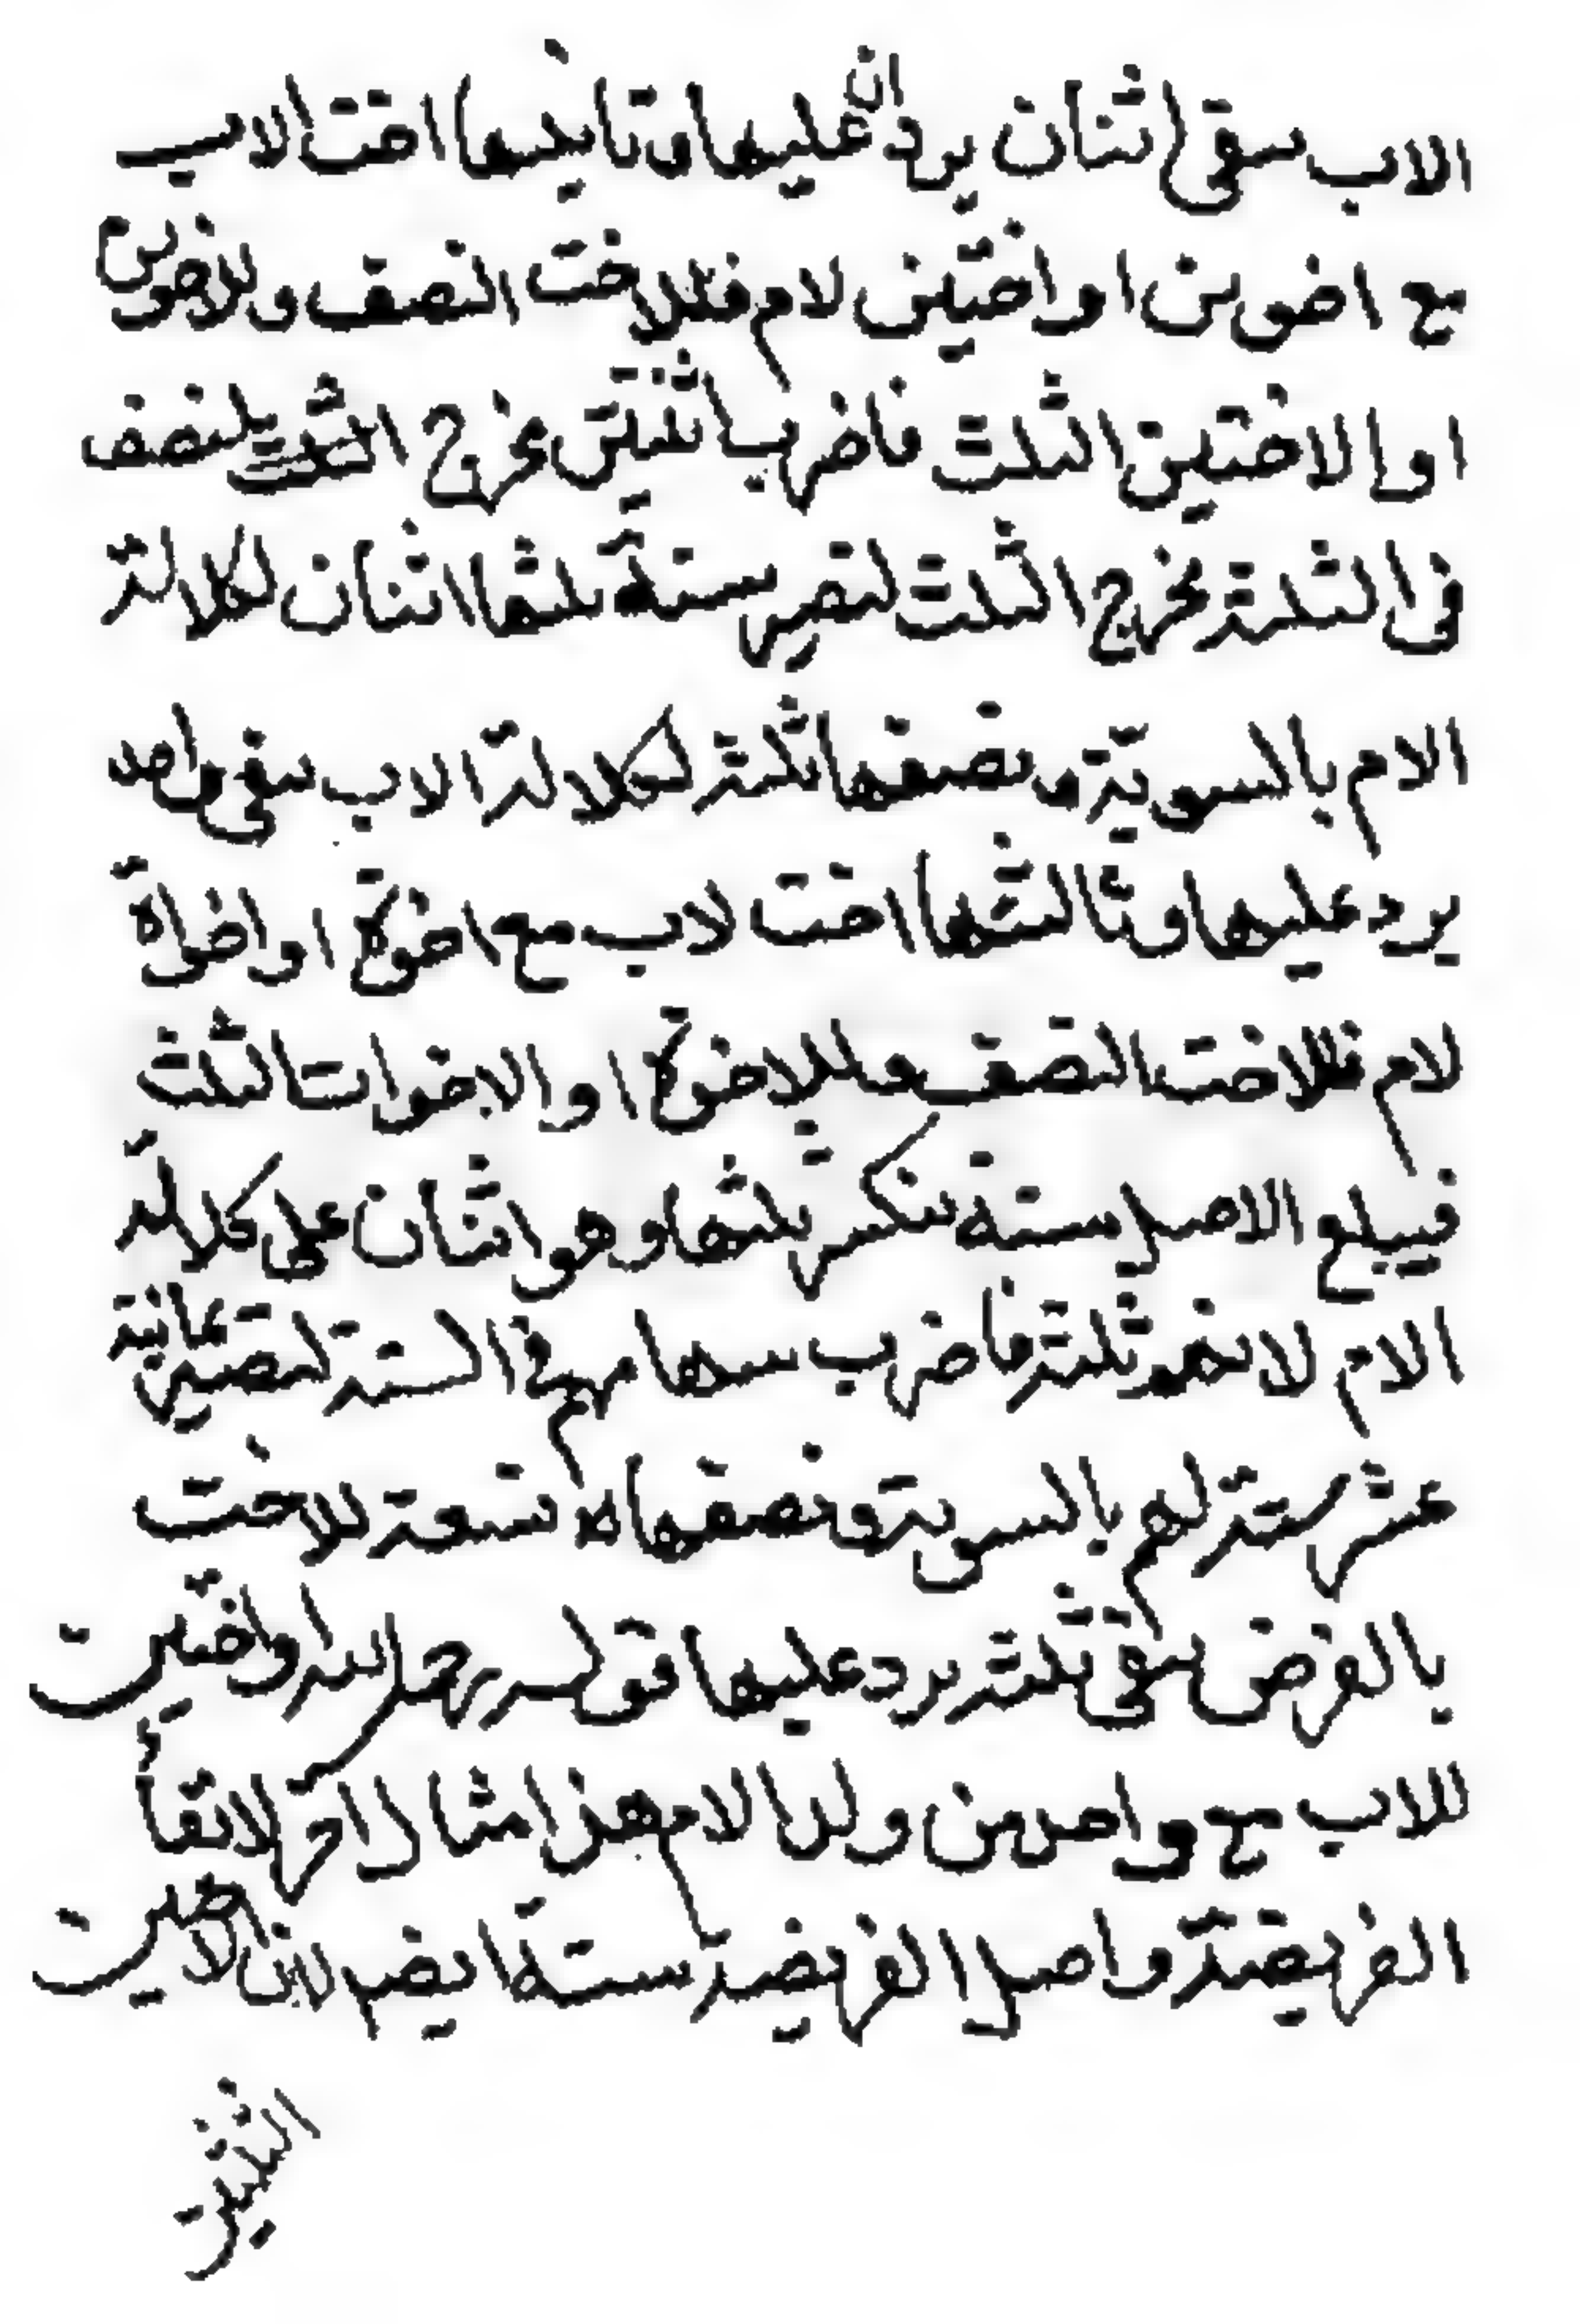 الاب سقى اثنان يردان عليها وتانيها اخت الاب
مع اخوين او اختين لام فللاخت النصف وللاخوين
او الاختين الثلث فاضرب اثنتين مخرج النصف
فى الثلثة مخرج الثلث لتصير ستة ثلثها اثنان لكلالة
الام بالسوية ونصفها ثلثة لكلالة الاب سقى واحد
يرد عليها وثالثها اخت لاب مع اخوة او اخواة
لام فللاخت النصف وللاخوة او الاخوات الثلث
فيبلغ الاصل ستة ينكسر ثلثها وهو اثنان على كلالة
الام لانهم ثلثة فاضرب سهامهم فى الستة لتصير ثمانية
عشر ستة لهم بالسوية ونصفها تسعة للاخت
بالفرض سقى ثلثة يرد عليها قوله رحمه الله واختين
للاب مع واحد من ولد الام هذا مثال اخر لانقاء
الفريضة واصل الفريضة ستة ايضا لان للاختين
الثلثين